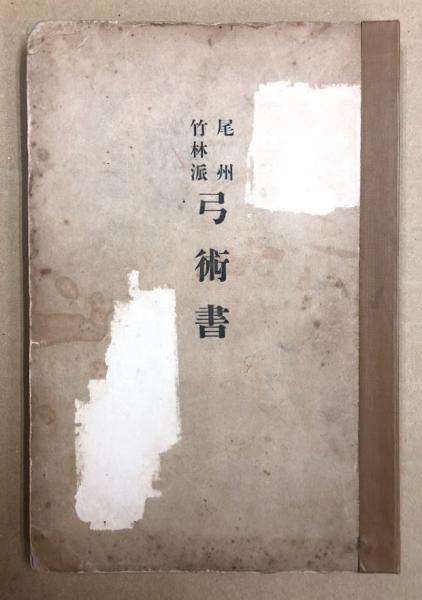 尾州
竹林派
弓術書